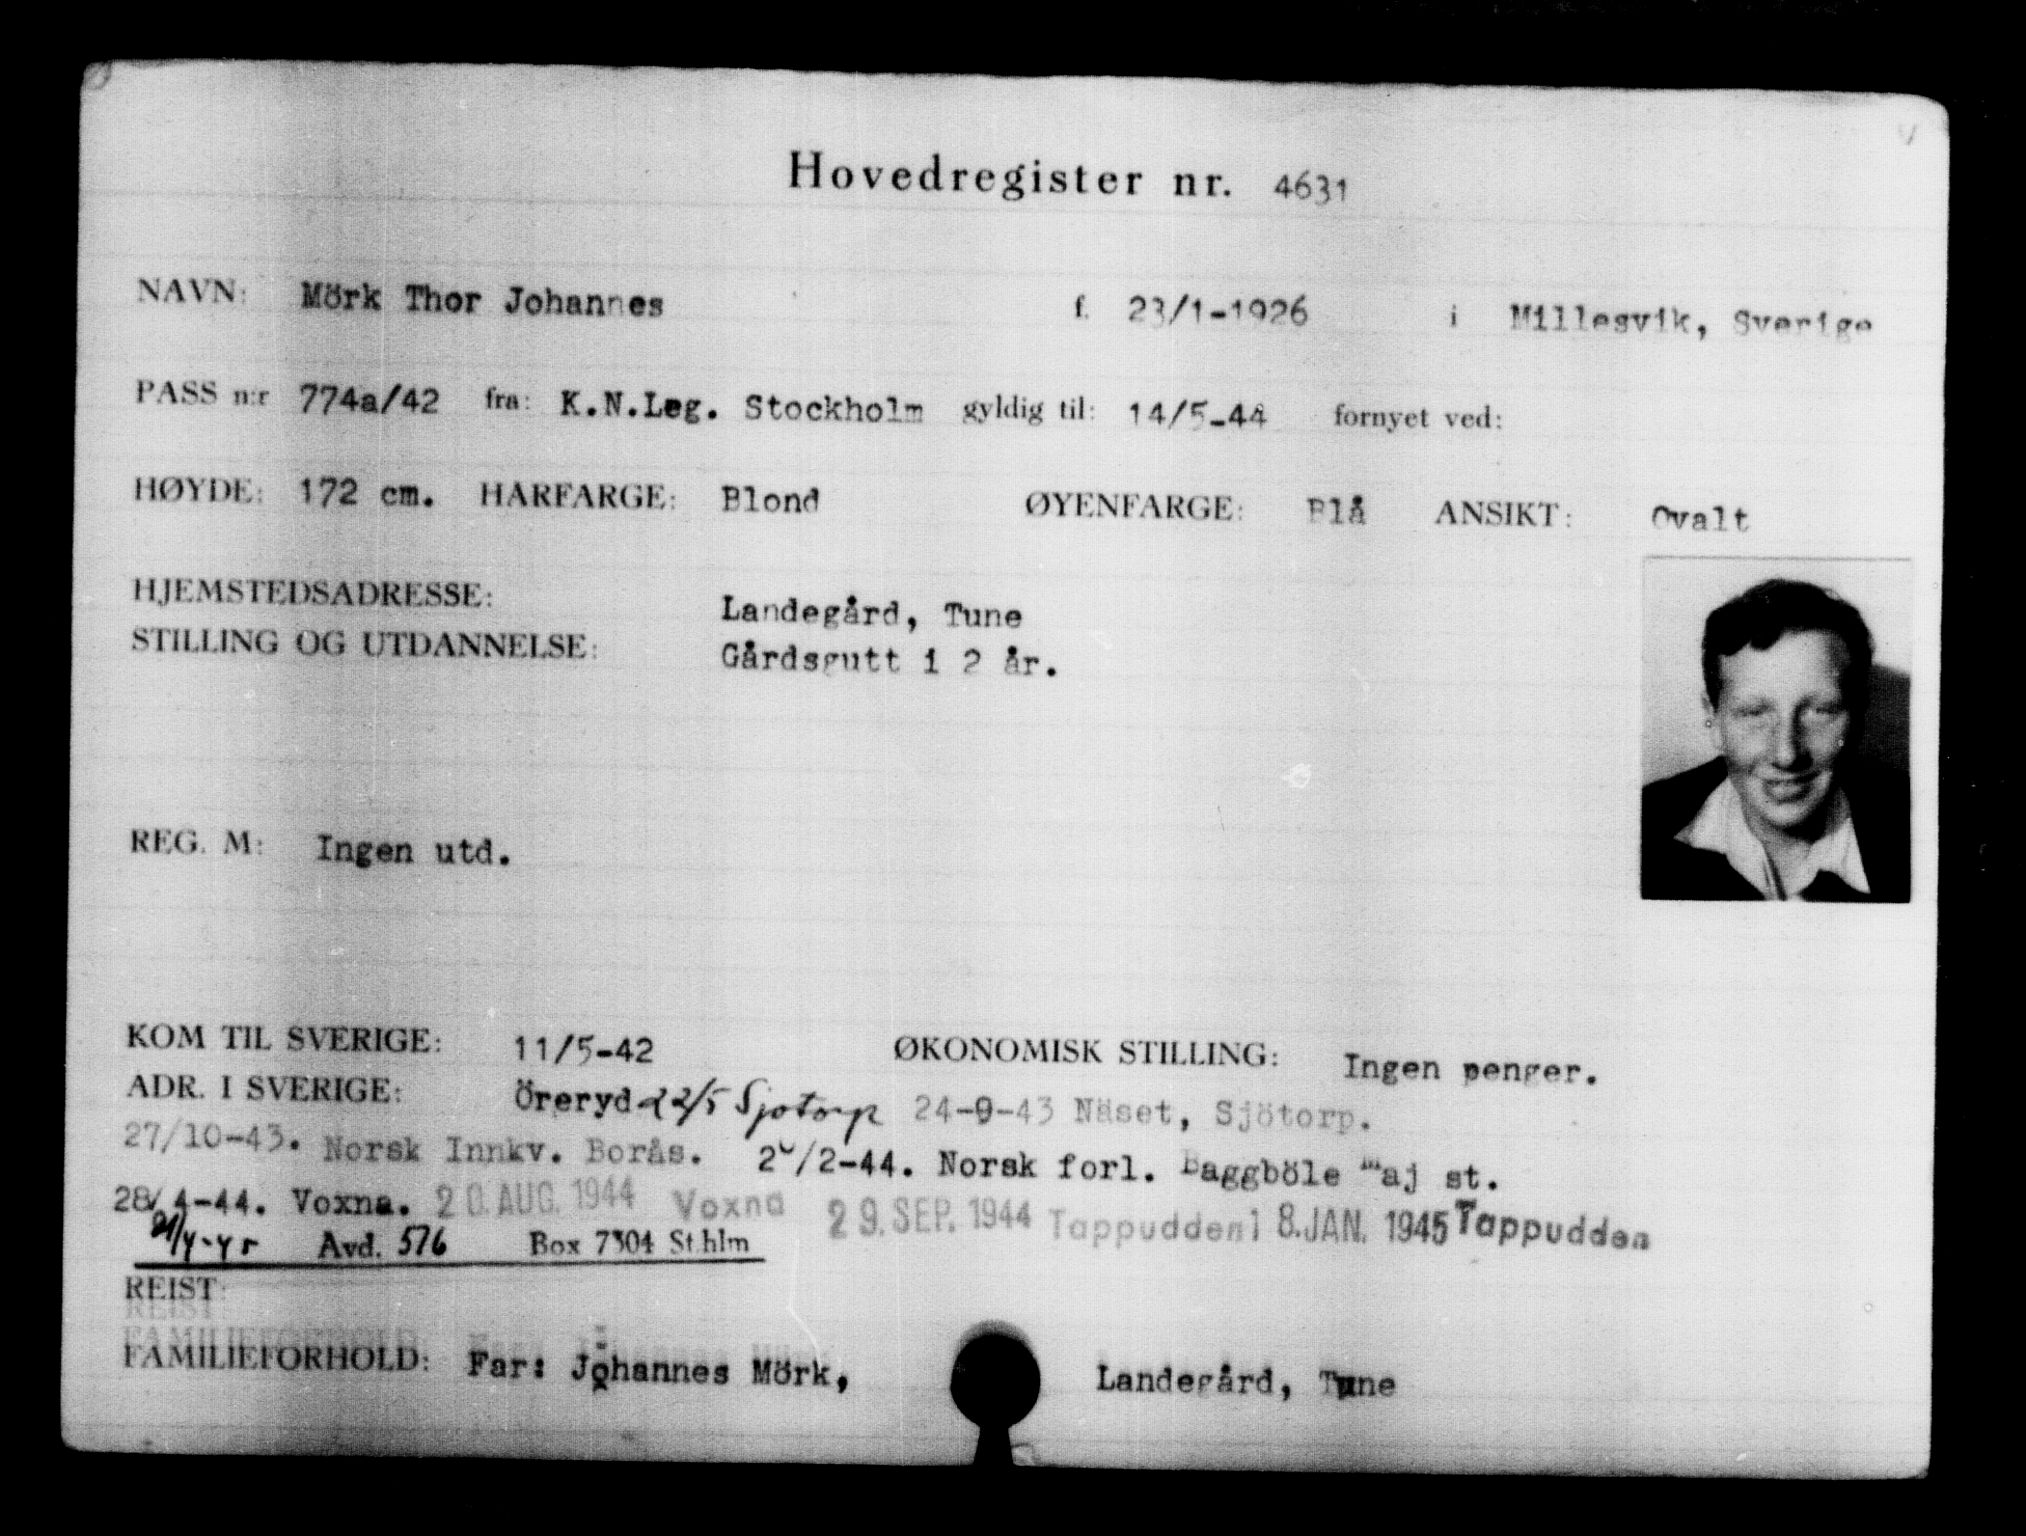 Hovedregister nr. 4631
NAVN: Mörk Thor Johannes f. 23/1-1926 i Millesvik, Sverige
PASS n:r 774a/42 fra: K.N.Leg. Stockholm gyldig til: 14/5-44 fornyet ved:
HØYDE: 172 cm. HARFARGE: Blond ØYENFARGE: Blå ANSIKT: Ovalt
HJEMSTEDSADRESSE: Landegård, Tune
STILLING OG UTDANNELSE: Gårdsgutt i 2 år.
REG. M: Ingen utd.
KOM TIL SVERIGE: 11/5-42 ØKONOMISK STILLING: Ingen penger.
ADR. I SVERIGE: Öreryd 22/5 Sjotorp 24-9-43 Näset, Sjötorp.
27/10-43. Norsk Innkv. Borås. /2-44. Norsk forl. Baggböle maj st.
28/4-44. Voxna. 20. AUG. 1944 Voxna 29. SEP. 1944 Tappudden 18. JAN. 1945 Tappudden
21/4-45 Avd. 576 Box 7304 St.hlm
REIST:
FAMILIEFORHOLD: Far: Johannes Mörk, Landegård, Tune